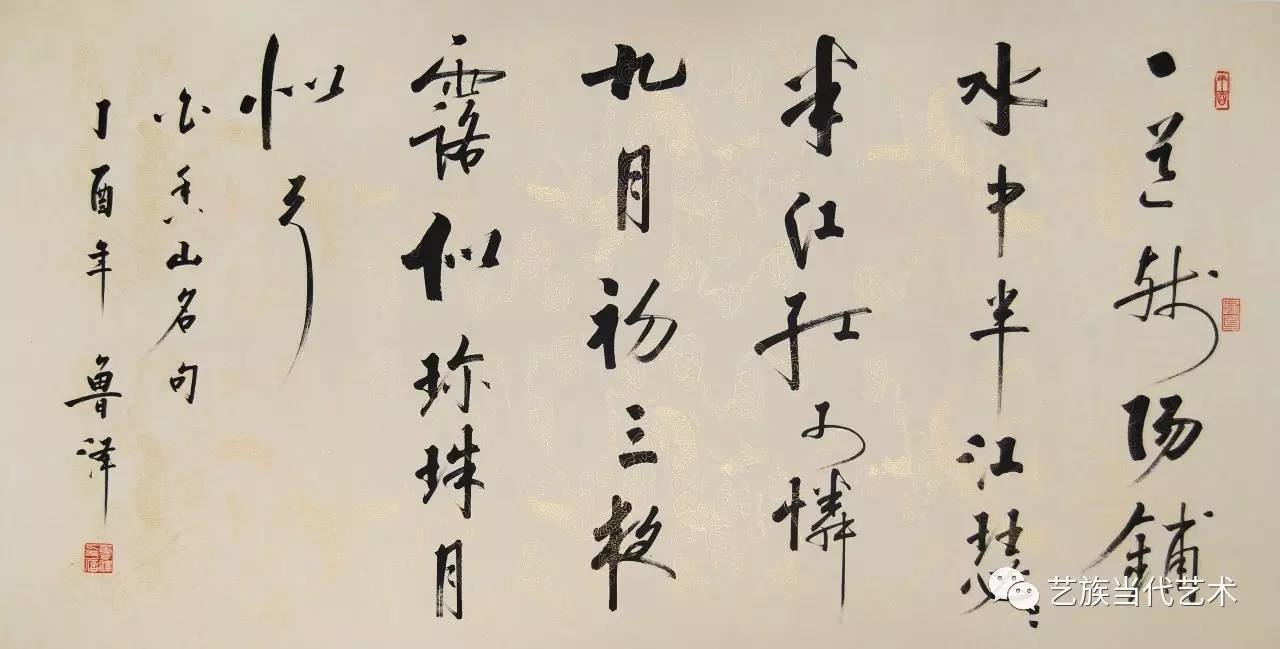 一道残陽鋪
水中半江瑟々
半江红可憐
九月初三夜
露似珍珠月
似弓
白香山名句
丁酉年 魯泽
艺族当代艺术